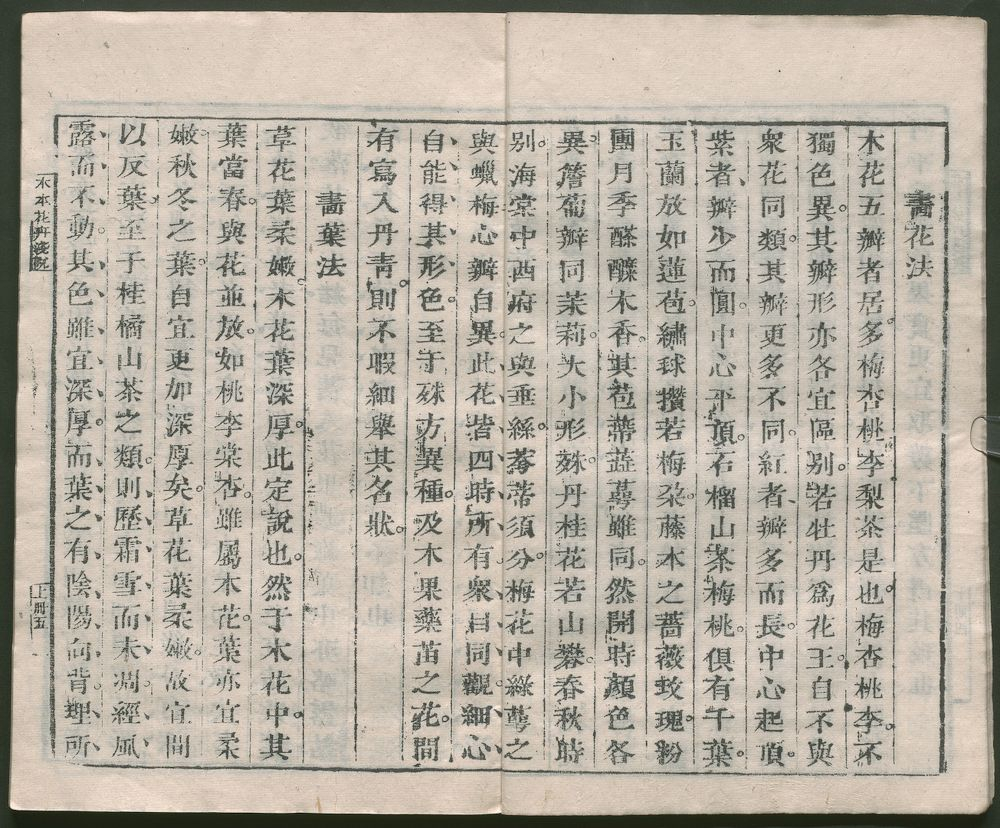 畫花法
木花五瓣者居多。梅杏桃李梨茶是也。梅杏桃李。不
獨色異。其瓣形亦各宜區别。若牡丹爲花王。自不與
衆花同類。其瓣更多不同。紅者瓣多而長。中心起頂。
紫者瓣少而圓。中心平頂。石榴山茶梅桃俱有千葉。
玉蘭放如蓮苞。繡球攢若梅朶。藤本之薔薇玫瑰。粉
團月季酴醾木香。其苞蒂蕋萼雖同。然開時顏色各
異。簷蔔瓣同茉莉。大小形殊。丹桂花若山礬。春秋時
别。海棠中西府之與垂絲。蒂須分。梅花中綠萼之
與蠟梅。心瓣自異。此花皆四時所有。衆目同觀。細心
自能得其形色。至于殊方異種。及木果藥苗之花。間
有寫入丹青。則不暇細舉其名狀。
畫葉法
草花葉柔嫩。木花葉深厚。此定說也。然于木花中。其
葉當春。與花並放。如桃李棠杏。雖屬木花。葉亦宜柔
嫩。秋冬之葉。自宜更加深厚矣。草花葉柔嫩。故宜間
以反葉。至于桂橘山茶之類。則歷霜雪而未凋。經風
露而不動。其色雖宜深厚。而葉之有陰陽向背。理所
木本花卉淺說
上册五